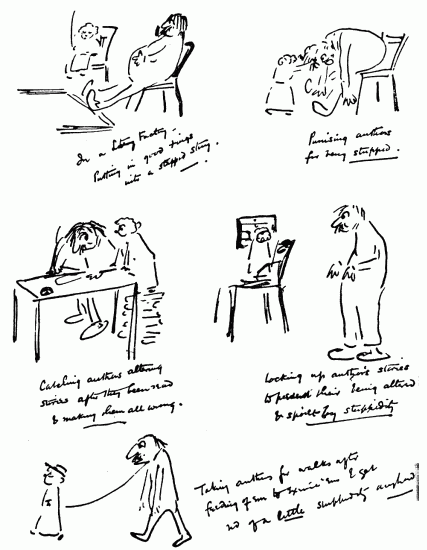 In a Story Factory.
Putting in good things
into a stupid story.
Punising authors
for being stupped.
Catching authors altering
stories after they been read
& making them all wrong.
Locking up author's stories
to prevent their being altered
& spoilt by stuppidity
Taking authors for walks after
feeding of em to exercise em & get
rid of a little stuppidity